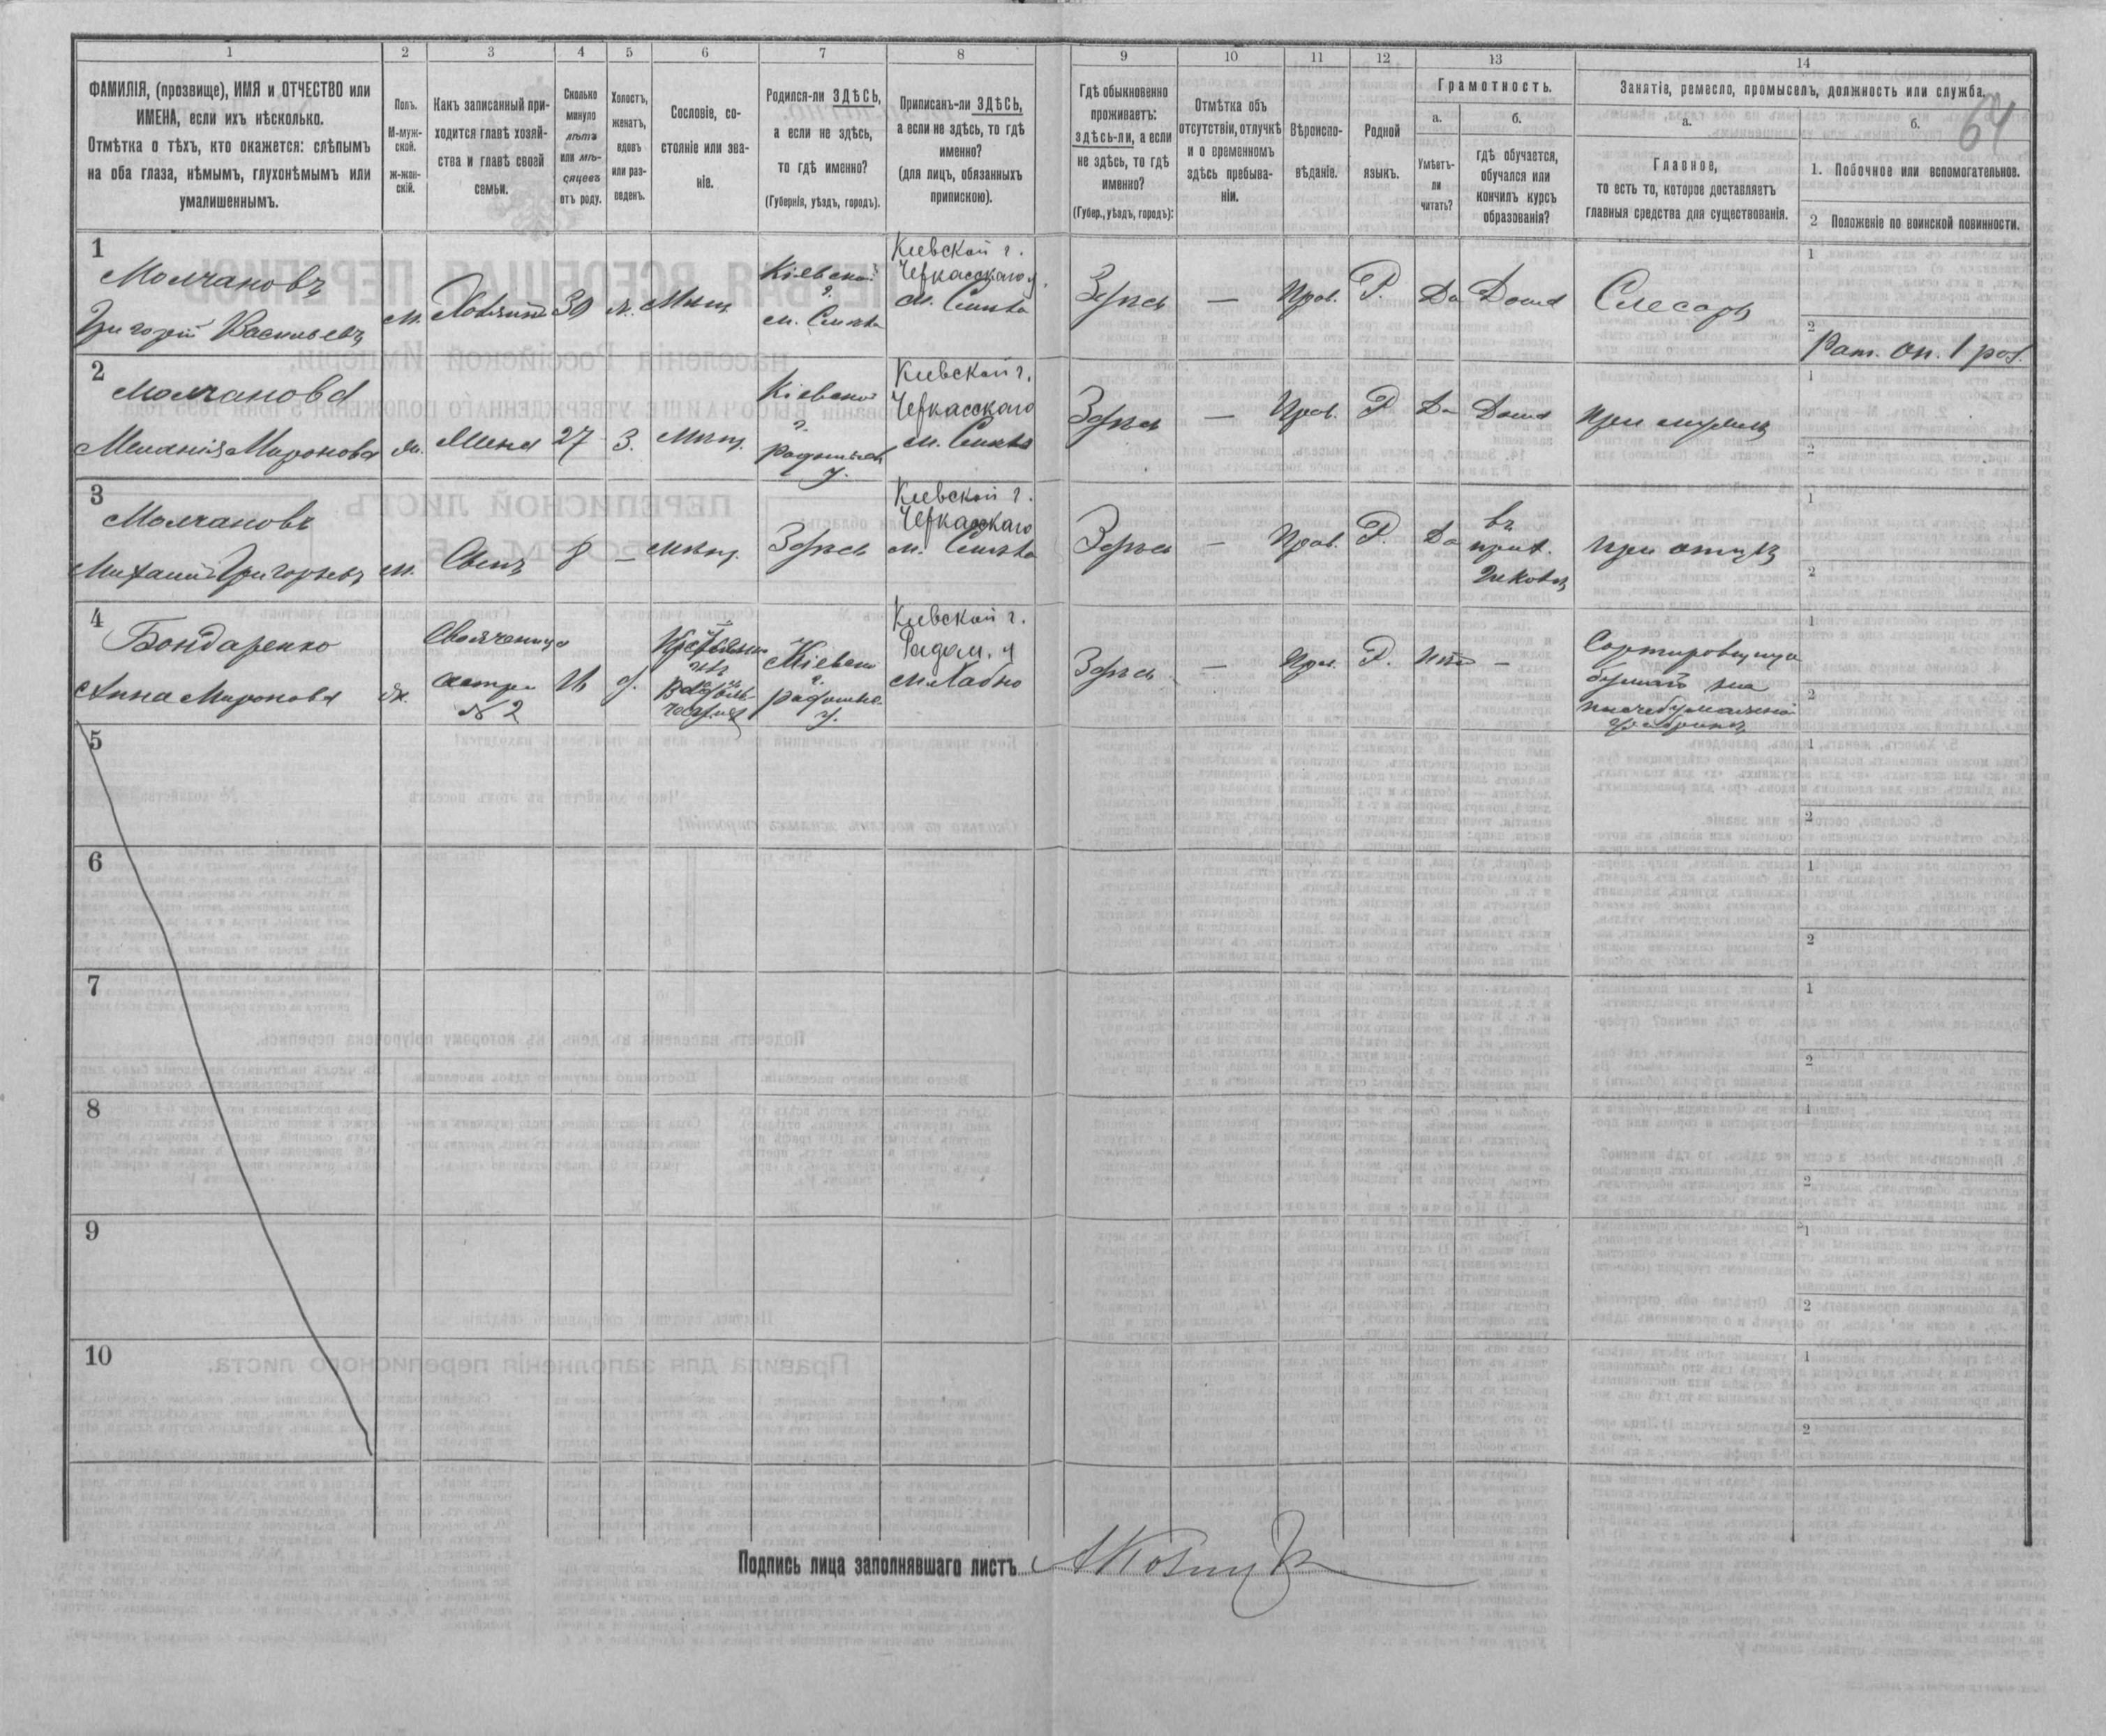 1 2 3 4 5 6 7 8 9 10 11 12 13 14
64
ФАМИЛІЯ, (прозвище), ИМЯ и ОТЧЕСТВО или
ИМЕНА, если ихъ нѣсколько.
Отмѣтка о тѣхъ, кто окажется: слѣпымъ
на оба глаза, нѣмымъ, глухонѣмымъ или
умалишеннымъ.
Полъ.
М-муж-
ской.
ж-жен-
скій.
Какъ записанный при-
ходится главѣ хозяй-
ства и главѣ своей
семьи.
Сколько
минуло
лѣтъ
или мѣ-
сяцевъ
отъ роду.
Холостъ,
женатъ,
вдовъ
или раз-
веденъ.
Сословіе, со-
стояніе или зва-
ніе.
Родился-ли ЗДѢСЬ,
а если не здѣсь,
то гдѣ именно?
(Губернія, уѣздъ, городъ).
Приписанъ-ли ЗДѢСЬ,
а если не здѣсь, то гдѣ
именно?
(для лицъ, обязанныхъ
припискою).
Гдѣ обыкновенно
проживаетъ:
здѣсь-ли, а если
не здѣсь, то гдѣ
именно?
(Губер., уѣздъ, городъ):
Отмѣтка объ
отсутствіи, отлучкѣ
и о временномъ
здѣсь пребыва-
ніи.
Вѣроиспо-
вѣданіе.
Родной
языкъ.
Грамотность.
а.
Умѣетъ-
ли
читать?
б.
гдѣ обучается,
обучался или
кончилъ курсъ
образованія?
Занятіе, ремесло, промыселъ, должность или служба.
а.
Главное,
то есть то, которое доставляетъ
главныя средства для существованія.
б.
1. Побочное или вспомогательное.
2 Положеніе по воинской повинности.
1
Молчановъ
Григорій Васильевъ
м.
Хозяинъ
30
ж.
Мѣщ.
Кіевской
г.
м. Смѣла
Кіевской г.
Черкасскаго у.
м. Смѣла
Здѣсь
—
Прав.
Р.
Да
Дома
Слесарь
1
2
Рат. оп. 1 раз.
2
Молчанова
Меланія Миронова
ж.
Жена
27
З.
Мѣщ.
Кіевской
г.
Радомысл.
у.
Кіевской г.
Черкасскаго
м. Смѣла
Здѣсь
—
Прав.
Р
Да
Дома
При мужѣ
1
2
3
Молчановъ
Михаилъ Григорьевъ
м.
Сынъ
8
—
Мѣщ.
Здѣсь
Кіевской г.
Черкасскаго
м. Смѣла
Здѣсь
—
Прав.
Р.
Да
въ
приг.
Школѣ
При отцѣ
1
2
4
Бондаренко
Анна Миронова
ж.
Свояченица
сестра
№ 2
16
д.
Кіевской
г.
Радомысл.
у.
Кіевской г.
Радом. у
Здѣсь
—
Прав.
Р.
Нѣтъ
—
Сортировщица
бумаги на
писчебумажной
фабрикѣ
1
2
5
1
2
6
1
2
7
1
2
8
1
2
9
1
2
10
1
2
Подпись лица заполнявшаго листъ